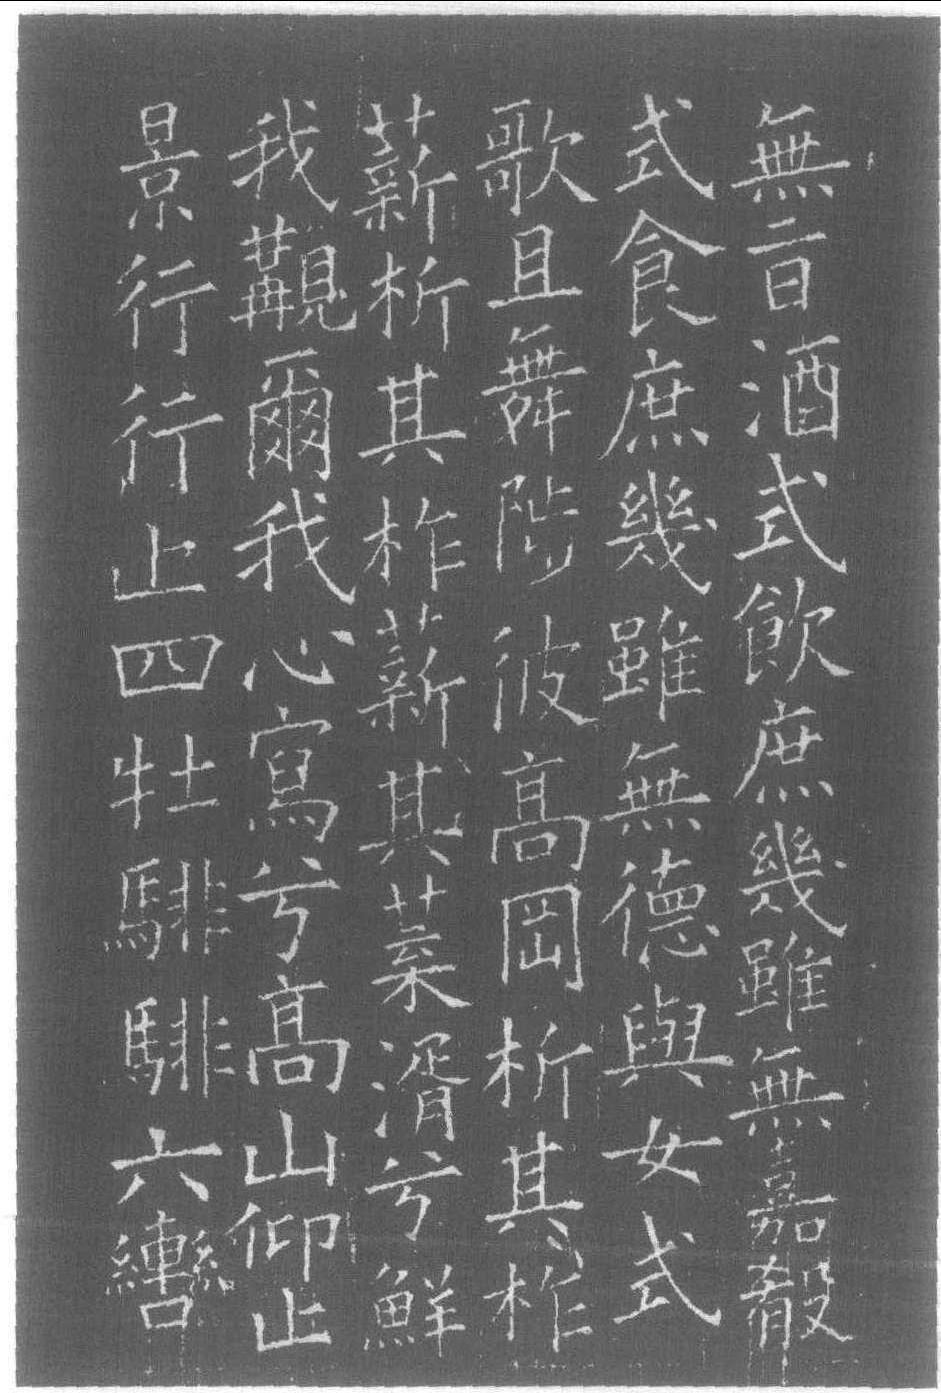 無旨酒式飲庶幾雖無嘉殽
式食庶幾雖無德與女式
歌且舞陟彼高岡析其柞
薪析其柞薪其葉湑兮鮮
我覯爾我心寫兮高山仰止
景行行止四牡騑騑六轡